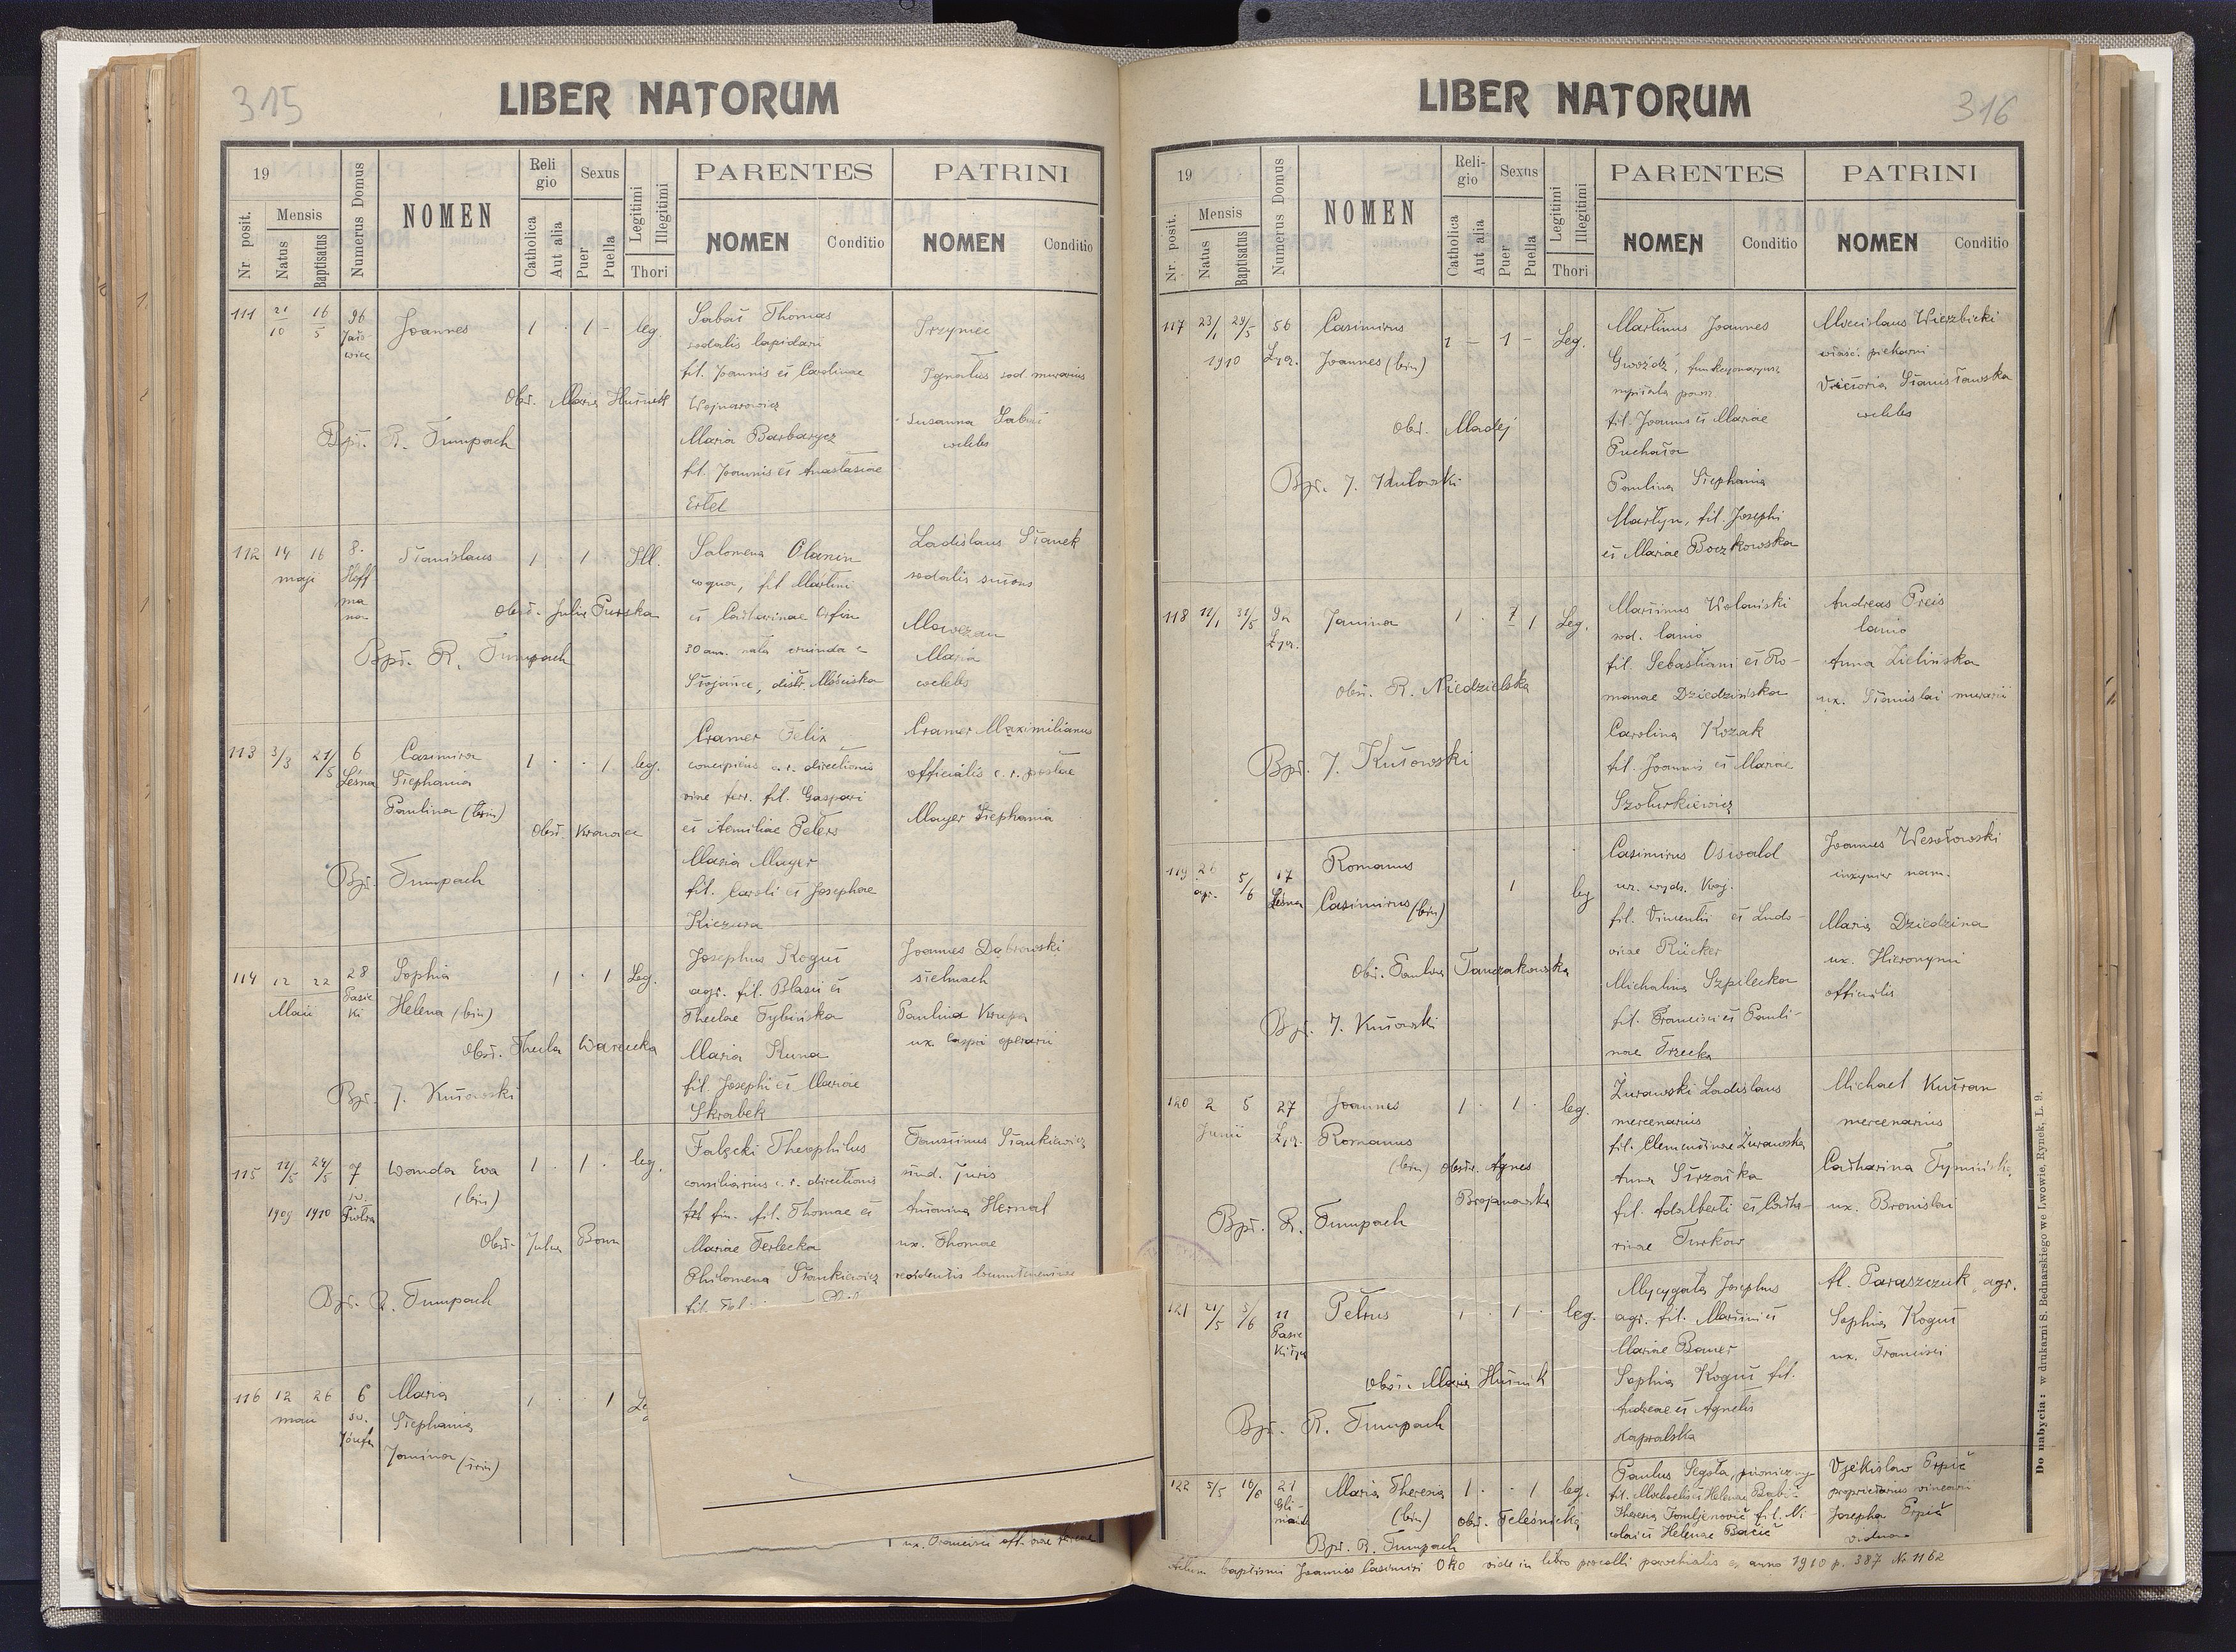 315
LIBER NATORUM
19
Nr. posit.
Mensis
Natus
Baptisatus
Numerus Domus
NOMEN
Religio
Catholica
Aut alia
Sexus
Puer
Puella
Legitimi
Illegitimi
Thori
PARENTES
NOMEN Conditio
PATRINI
NOMEN Conditio
111 21/10 16/5 96 Joannes 1 . 1 - leg.
Sabat Thomas
sodalis lapidari
fil. Joannis et Carolinae
Wojnarowicz
Maria Barbarycz
fil. Joannis et Anastasiae
Eitel
Ignatius sod. murarius
Susanna
Obst. Maria Hutnik
Bpt. R. Tumpach
112 14 16 maji 8. Hoffmana
Stanislaus 1 . 1 . Ill.
Salomena Olanin
coqua, fil. Martini
et Catharinae
30 ann. nata oriunda e
Stojańce, distr. Mościska
Ladislaus Stanek
sodalis sutoris
Maria
coelebs
Obst. Julia Purska
Bpt. R. Tumpach
113 3/3 21/5 6 Leśna
Casimira
Stephania
Paulina (trin) 1 . . 1 leg.
Cramer Felix
concipiens c. r. directionis
viae ferr. fil. Gaspari
et Aemiliae Peters
Maria Mayer
fil. Caroli et Josephae
Kiczura
Cramer Maximilianus
officialis c. r. postae
Mayer Stephania
Bpt. Tumpach
114 12 22 Maii 28 Pasieki
Sophia
Helena (bin) . 1 . 1 Leg.
Josephus Kogut
agr. fil. Blasii et
Theclae Tybińska
Maria Kuna
fil. Josephi et Mariae
Skrabek
Joannes Dąbrowski
stelmach
Paulina Krupa
ux. Caspri operarii
Obst. Thecla Warecka
Bpt. J. Kutowski
115 12/5 24/5 1909 1910 7 św. Piotra
Wanda Eva
(bin) 1 . 1 . leg.
Falęcki Theophilus
consiliarius c. r. directionis
fin. fil. Thomae et
Mariae Terlecka
Philomena Stankiewicz
Faustinus Stankiewicz
stud. juris
Antonina Hernal
ux. Thomae
Obst. Julia Bonn
Bpt. R. Tumpach
116 12 26 maii 6 św. Józefa
Maria
Stephania
Janina (trin) 1 . . 1
316
LIBER NATORUM
19
Nr. posit.
Mensis
Natus
Baptisatus
Numerus Domus
NOMEN
Religio
Catholica
Aut alia
Sexus
Puer
Puella
Legitimi
Illegitimi
Thori
PARENTES
NOMEN Conditio
PATRINI
NOMEN Conditio
117 23/1 29/5 1910 56 Łycz.
Casimirus
Joannes (bin) 1 - 1 - Leg.
Martinus Joannes
Gwóźdź, funkcyonaryusz
szpitala powsz.
fil. Joannis et Mariae
Puchała
Paulina Stephania
Martyn, fil. Josephi
et Mariae Boczkowska
Miecislaus Wierzbicki
właśc. piekarni
Victoria Stanisławska
coelebs
Obst. Madej
Bpt. J. Kutowski
118 12/1 31/5 9a Łycz.
Janina 1 . 1 Leg.
Martinus Wolański
sod. lanio
fil. Sebastiani et Romanae Dziedzińska
Carolina Kozak
fil. Joannis et Mariae
Szoturkiewicz
Andreas Preis
lanio
Anna Zielińska
ux. Stanislai murarii
Obst. R. Niedzielska
Bpt. J. Kutowski
119 26 apr. 5/6 17 Leśna
Romanus
Casimirus (bin) 1 leg
Casimirus Oswald
urz. wydz. kraj.
fil. Vincentii et Ludovicae Rücker
Michalina Szpilecka
fil. Francisci et Paulinae Trzecka
Joannes Wesołowski
inżynier nam.
Maria Dziedzina
ux. Hieronymi
officialis
Obst. Paulina Tanczakowska
Bpt. J. Kutowski
120 2 5 Junii 27 Łycz.
Joannes
Romanus
(bin) 1 . 1 . leg.
Żurawski Ladislaus
mercenarius
fil. Clementinae Żurawska
Anna Strzałka
fil. Adalberti et Catharinae Turkow
Michael Kutran
mercenarius
Catharina Tymińska
ux. Bronislai
Obstr. Agnes
Brojanowska
Bpt. R. Tumpach
121 21/5 5/6 11 Pasieki Łycz.
Petrus 1 . 1 . leg.
Mycygała Josephus
agr. fil. Martini et
Mariae Bauer
Sophia Kogut fil.
Andreae et Agnetis
Kapralska
Al. Paraszczuk, agr.
Sophia Kogut
ux. Francisci
Obst. Maria Hutnik
Bpt. R. Tumpach
122 5/5 10/6 21 Gliniańska
Maria Theresia
(bin) 1 . . 1 leg.
Paulus Segota,
fil. Michaelis et Helenae Babić
Theresia Tomljenović fil. Nicolai et Helenae Bacić
Vjekislav Prpić
proprietarius vinearii
Josepha Prpić
vidua
Obst. Teleśnicka
Bpt. R. Tumpach
Actum baptismi Joannis Casimiri Oko vide in libro protocolli parochialis ex anno 1910 p. 387 No 1162
Do nabycia: w drukarni S. Bednarskiego we Lwowie, Rynek, L. 9.